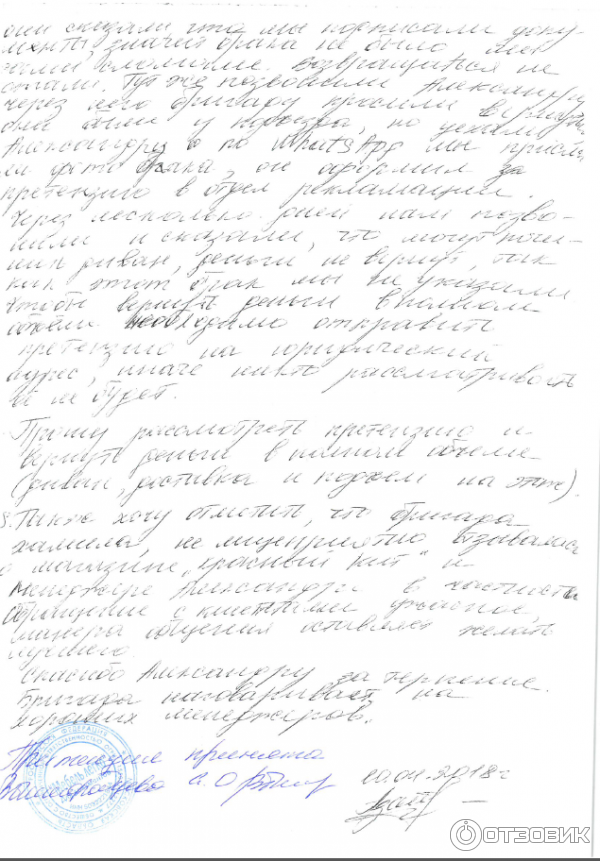 они сказали что мы подписали доку-
менты значит брака не было
Возвращаться не
стали. Тут же позвонили Александру
через него бригаду просили вернуться
они были у подъезда, но уехали
Александру по WhatsApp мы
фото брака, он оформил
претензию в отдел рекламации.
Через несколько дней нам позво-
нили и сказали, что могут почи-
нить диван, деньги не вернут, так
как этот брак мы не указали
Чтобы вернуть деньги в полном
объёме необходимо отправить
претензию на юридический
адрес, иначе никто рассматривать
её не будет.
Прошу рассмотреть претензию и
вернуть деньги в полном объеме
(диван, доставка и подъем на этаж).
Также хочу отметить, что бригада
хамила, не лицеприятно отзывалась
о магазине "Красный Кит" и
менеджере Александре в частности
обращение с клиентами ужасное,
манера общения оставляет желать
лучшего.
Спасибо Александру за терпение.
Бригада наговаривает на
хороших менеджеров.
Претензию приняла
20.01.2018г
ОТЗОВИК